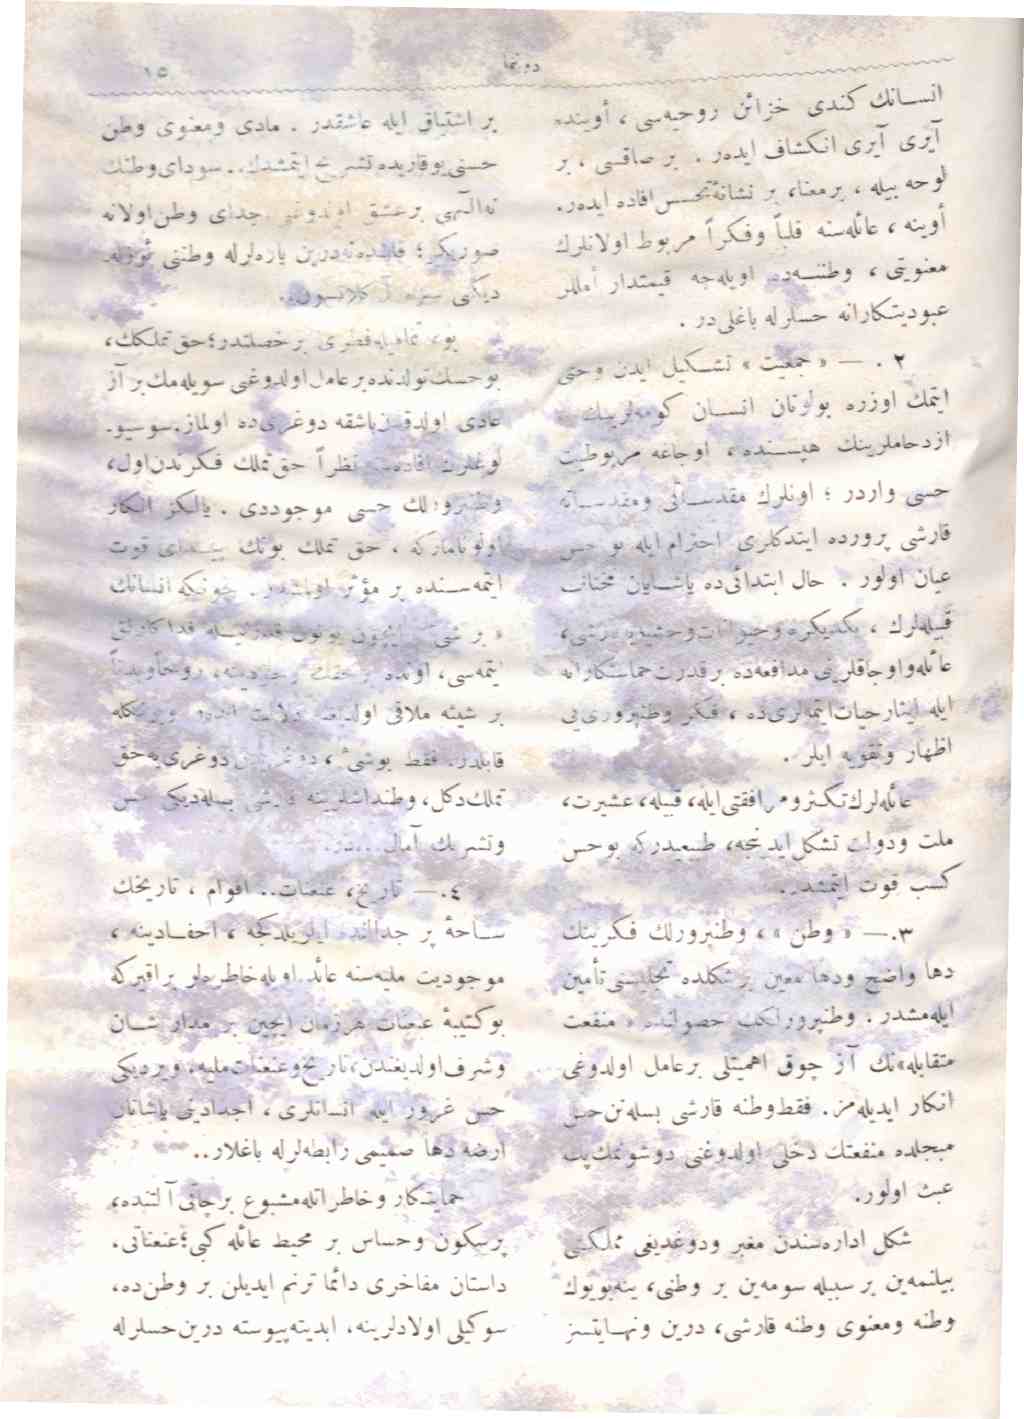 دوننما
١٥
انسانك كندى خزائن روحيه‌سى ، أوينده
آيرى آيرى انكشاف ايدەر . بر صاقسى ، بر
لوحه بيله ، بر معنا، بر نشانهٔ تحسس افاده ايدەر.
أوينه ، عائله‌سنه قلباً وفكراً مربوط اولانلرك
معنويتى ، وطننه‌ده اويله‌جه قيمتدار أمللر
عبوديتكارانه حسلرله باغلى‌در .
٢ . — « جمعيت » تشكيل ايدن وحتى
ايتمك اوزره بولونان انسان كومه‌لرينك
ازدحاملرينك هپسنده ، اوجاغه مربوطيت
حسى واردر ؛ اونلرك مقدساتى ومقدساته
قارشى پرورده ايتدكلرى احترام ايله بو حس
عيان اولور . حال ابتدائى‌ده ياشايان مختلف
قبيله‌لرك ، يكديكره وحيوانات وحشيه‌يه قارشى،
عائله واوجاقلرينى مدافعه‌ده بر قدرت حماستكارانه
ايله ايثار حيات ايتمه‌لرى‌ده ، فكر وطنپرورى‌يى
اظهار وتقويه ايلر .
عائله‌لرك تكثر ومرافقتى ايله، قبيله، عشيرت،
ملت ودولت تشكل ايدنجه، طبيعيدركه بو حس
كسب قوت ايتمشدر.
٣.— « وطن » ، وطنپرورلك فكرينك
دها واضح ودها معين بر شكلده تجليسنى تأمين
ايله‌مشدر . وطنپرورلكك حصولنده « منفعت
متقابله»نك آز چوق اهميتلى بر عامل اولدوغى
انكار ايديله‌مز. فقط وطنه قارشى بسله‌نن حس
مبجلده منفعتك دخلى اولدوغنى دوشونمك پك
عبث اولور.
شكل اداره‌سندن مغبر ودوغديغى مملكتى
بيلنمه‌ين بر سببله سومه‌ين بر وطنى، ينه بويوك
وطنه ومعنوى وطنه قارشى، درين ونهايتسز
بر اشتياق ايله عاشقدر . مادى ومعنوى وطن
حسنى يوقاريده تشريح ايتمشدك.. سوداى وطنك
نه الٓهى بر عشق اولدوغنى جداى وطن اولانه
صوريكز؛ قلبنده نه درين ياره‌لرله وطننى
ديكنى سزه آكلاتسون..
بو، تماميله فطرى بر خصلتدر؛ حق تملكك،
بو حسك تولدنده بر عامل اولدوغنى سويله‌مك بر آز
عادى اولدوقدن باشقه دوغرى‌ده اولماز. موسيو.
نظراً حق تملك فكرندن اول،
وطنپرورلك حسى موجوددى . يالكز انكار
اولونامازكه ، حق تملك بونك پيداى قوت
ايتمه‌سنده بر مؤثر اولمشدر . چونكه انسانك
« بر شى » ايچون بوتون قدرتيله فداكارلق
ايتمه‌سى، اونده بر حقك موجوديتنه، روحاً وبدناً
بر شيئه ملاقى اولديغنه دلالت ايدەر
قابلدر. فقط بو شى ، دوغريدن دوغرى‌يه حق
تملك دكل، وطنداشلرينه قارشى بسله‌ديكى حس
وتشريك آمال...در.
٤.— تاريخ، عنعنات.. اقوام ، تاريخك
ساحهٔ پر جدالنده ايلريله‌دكجه ، احفادينه ،
موجوديت مليه‌سنه عائد اويله خاطره‌لر براقيركه
بو كتيبهٔ عنعنات هر زمان ايچين بر مدار شان
وشرف اولديغندن، تاريخ وعنعنات مليه، ويرديكى
حس غرور ايله انسانلرى ، اجدادينى ياشاتان
ارضه دها صميمى رابطه‌لرله باغلار..
حمايتكار وخاطراتله مشبوع بر چاتى آلتنده،
پرسكون وحساس بر محيط عائله كبى؛ عنعناتى.
داستان مفاخرى دائما ترنم ايديلن بر وطن‌ده،
سوكيلى اولادلرينه، ابديته پيوسته درين حسلرله